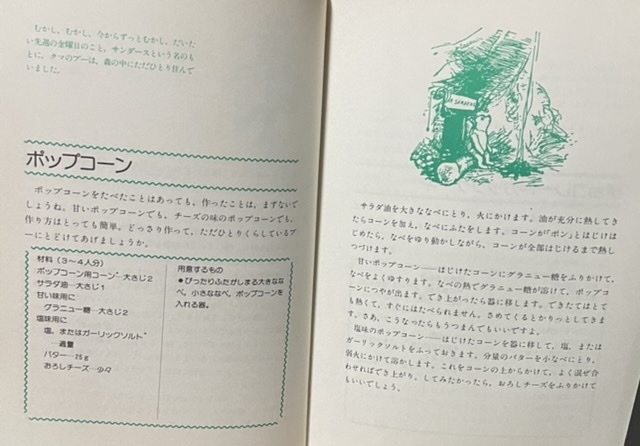 むかし、むかし、今からずっとむかし、だいた
い先週の金曜日のこと、サンダースという名のも
とに、クマのプーは、森の中にただひとり住んで
いました。
ポップコーン
ポップコーンをたべたことはあっても、作ったことは、まずないで
しょうね。甘いポップコーンでも、チーズの味のポップコーンでも、
作り方はとっても簡単。どっさり作って、ただひとりくらしているプ
ーにとどけてあげましょうか。
材料（3〜4人分）
ポップコーン用コーン・大さじ2
サラダ油…大さじ1
甘い味用に
グラニュー糖…大さじ2
塩味用に
塩、またはガーリックソルト
…適量
バター…25g
おろしチーズ…少々
用意するもの
●ぴったりふたがしまる大きなな
べ，小さななべ，ポップコーンを
入れる器。
サラダ油を大きななべにとり、火にかけます。油が充分に熱してき
たらコーンを加え、なべにふたをします。コーンが「ポン」とはじけは
じめたら、なべをゆり動かしながら、コーンが全部はじけるまで熱し
つづけます。
甘いポップコーン——はじけたコーンにグラニュー糖をふりかけて、
なべをよくゆすります。なべの熱でグラニュー糖が溶けて、ポップコ
ーンにつやが出ます。でき上がったら器に移します。できたてはとて
も熱くて、すぐにはたべられません。さめてくるとかりっとしてきま
す。さあ、こうなったらもうつまんでもいいですよ。
塩味のポップコーン——はじけたコーンを器に移して、塩、または
ガーリックソルトをふっておきます。分量のバターを小なべにとり、
弱火にかけて溶かします。これをコーンの上からかけて、よく混ぜ合
わせればでき上がり。してみたかったら、おろしチーズをふりかけて
もいいでしょう。